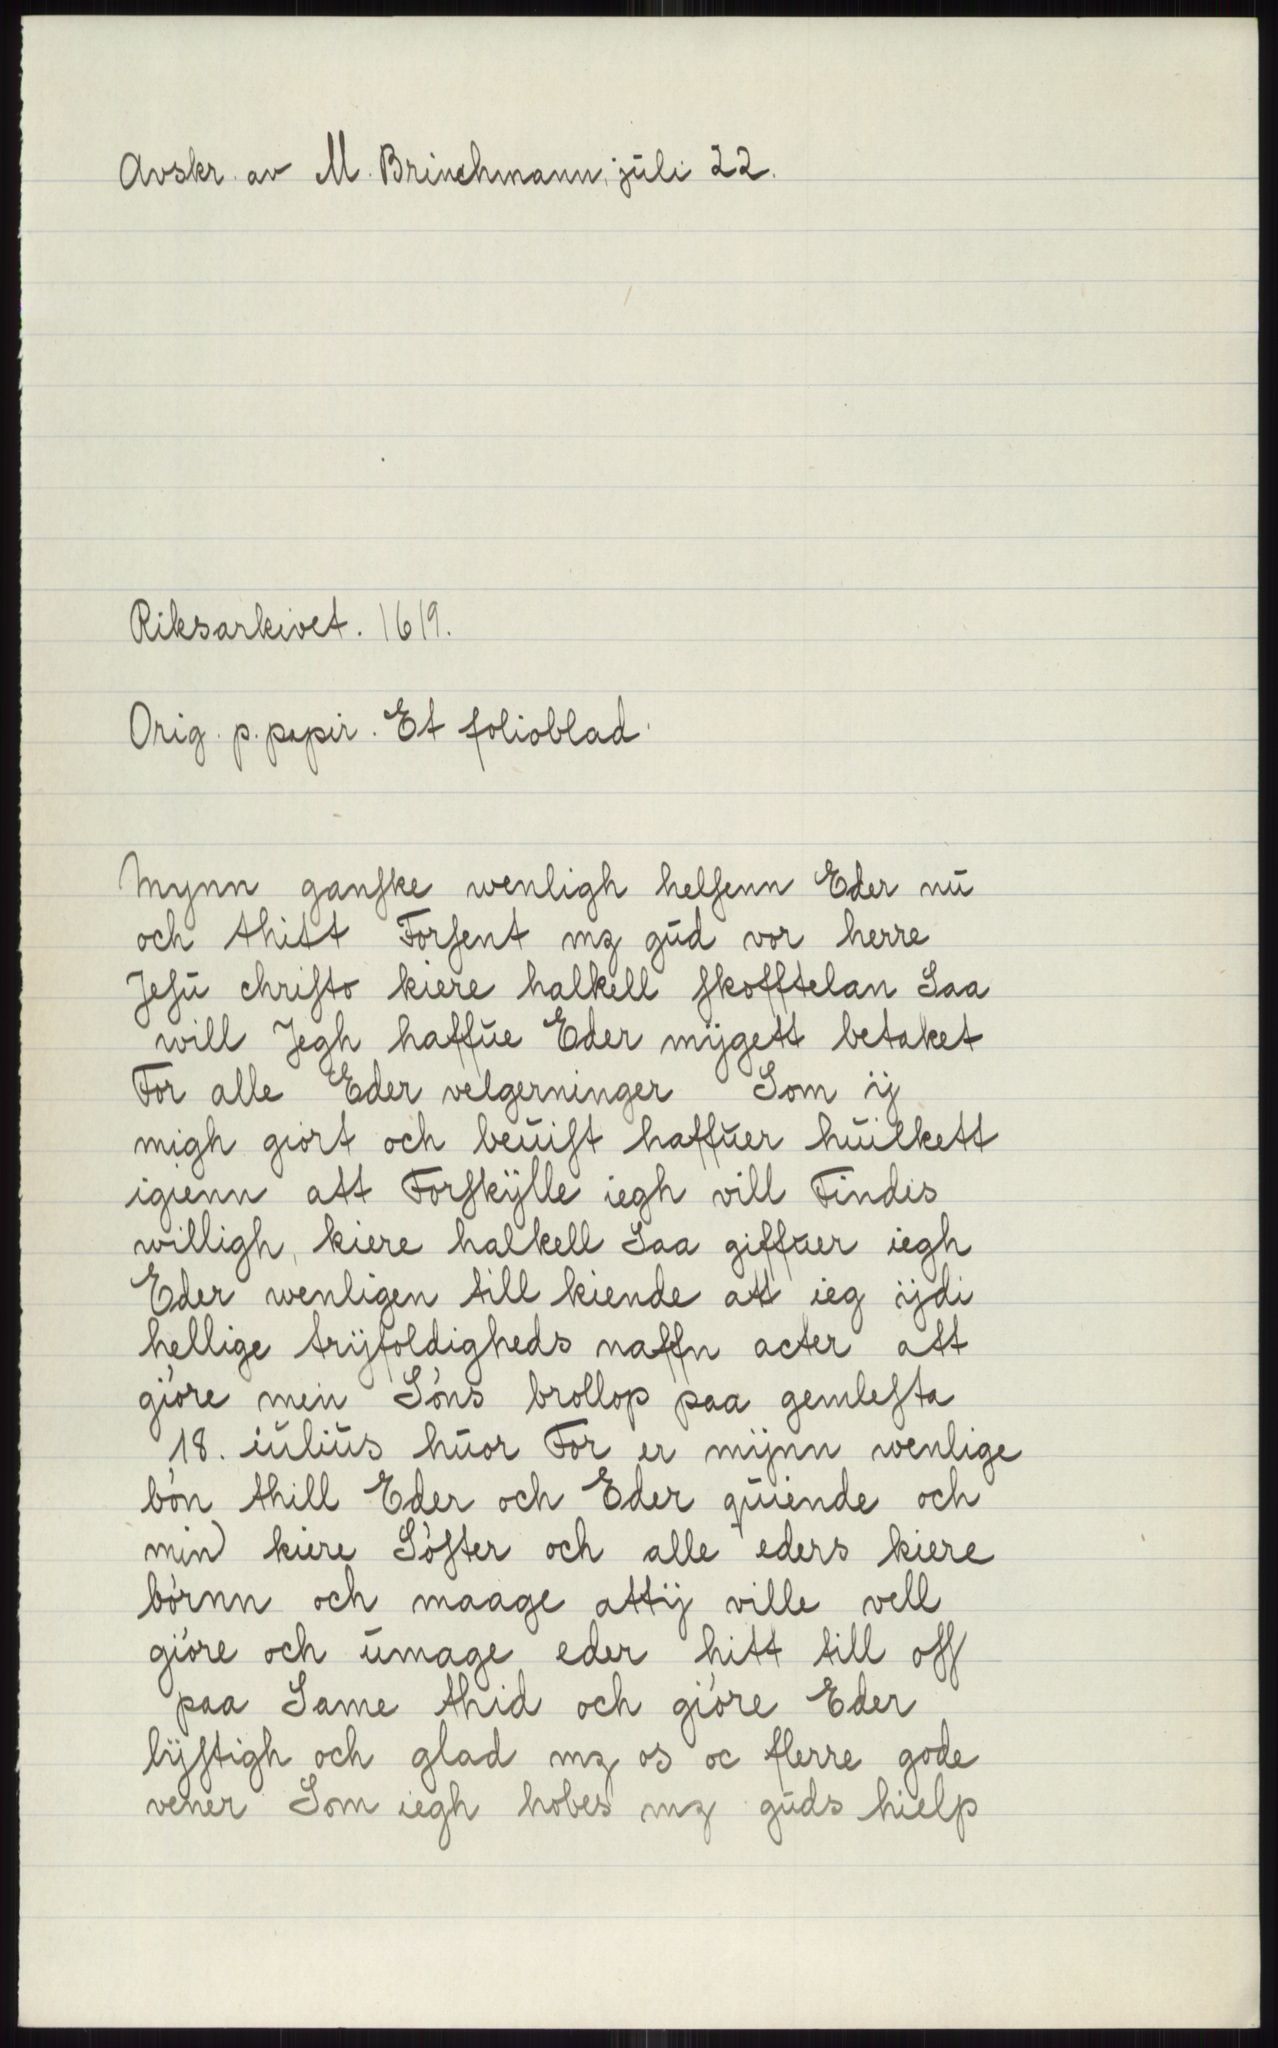 Avskr. av M. Brinchmann, juli 22.
Riksarkivet. 1619.
Orig. p. papir. Et folioblad.
Mynn ganſke wenligh helſenn Eder nŭ
och thitt Forſent mꝫ gŭd vor herre
Jeſŭ chriſto kiere halkell ſkofftelan Saa
will Jegh haffŭe Eder mÿgett betaket
For alle Eder velgerninger Som ij
migh giort och beŭiſt haffŭer hŭilkett
igienn att Forſkÿlle iegh vill Findes
willigh, kiere halkell Saa giffŭer iegh
Eder wenligen till kiende att ieg ijdi
hellige trÿfoldigheds naffn acter att
gióre men Sóns brollop paa gemleſta
18. iŭliŭs hŭor For er mijnn wenlige
bón thill Eder och Eder qŭiende och
min kiere Sóſter och alle eders kiere
bórnn och maage attij ville vell
gióre och ŭmage eder hitt till oſſ
paa Same thid och gióre Eder
lÿſtigh och glad mꝫ os oc flerre gode
vener Som iegh hobes mꝫ gŭds hielp